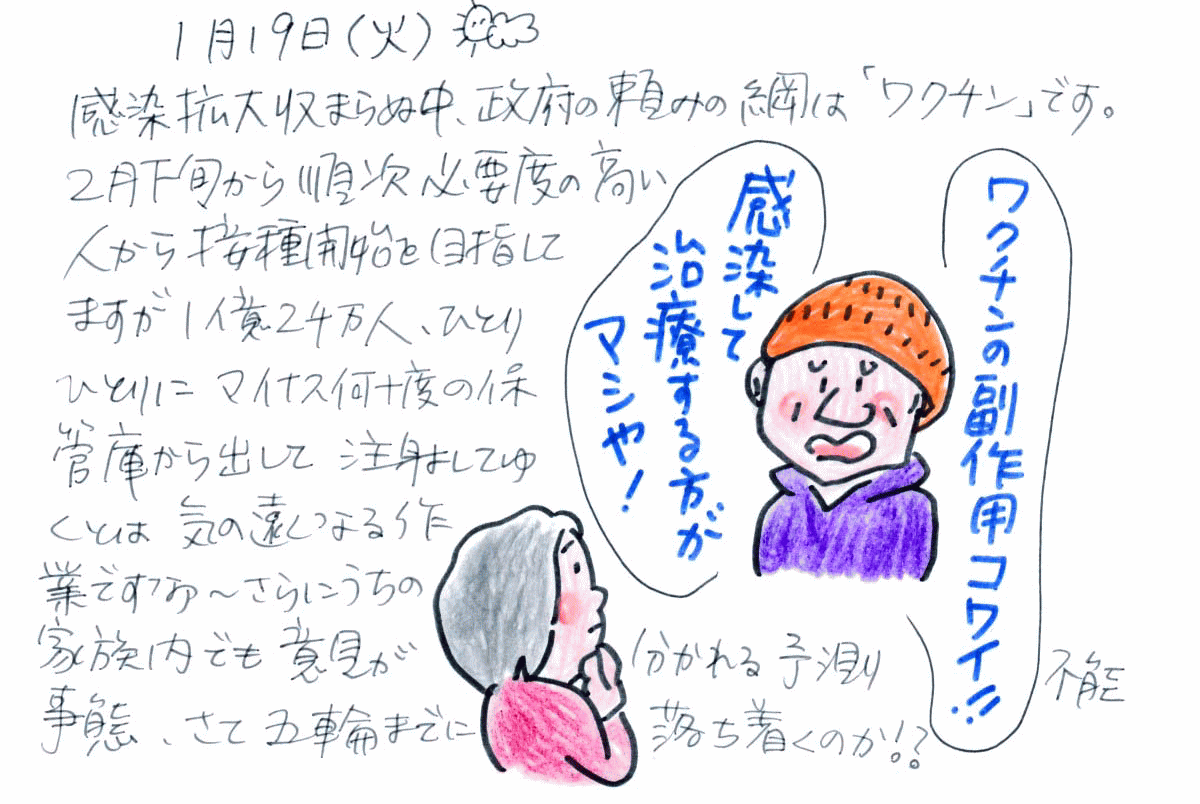 1月19日(火)
感染拡大収まらぬ中、政府の頼みの綱は「ワクチン」です。
2月下旬から順次必要度の高い
人から接種開始を目指して
ますが1億24万人、ひとり
ひとりにマイナス何十度の保
管庫から出して注射してゆ
くとは気の遠くなる作
業ですねぇ〜さらにうちの
家族内でも意見が分かれる予測不能
事態、さて五輪までに落ち着くのか!?
ワクチンの副作用コワイ!!
感染して
治療する方が
マシや!